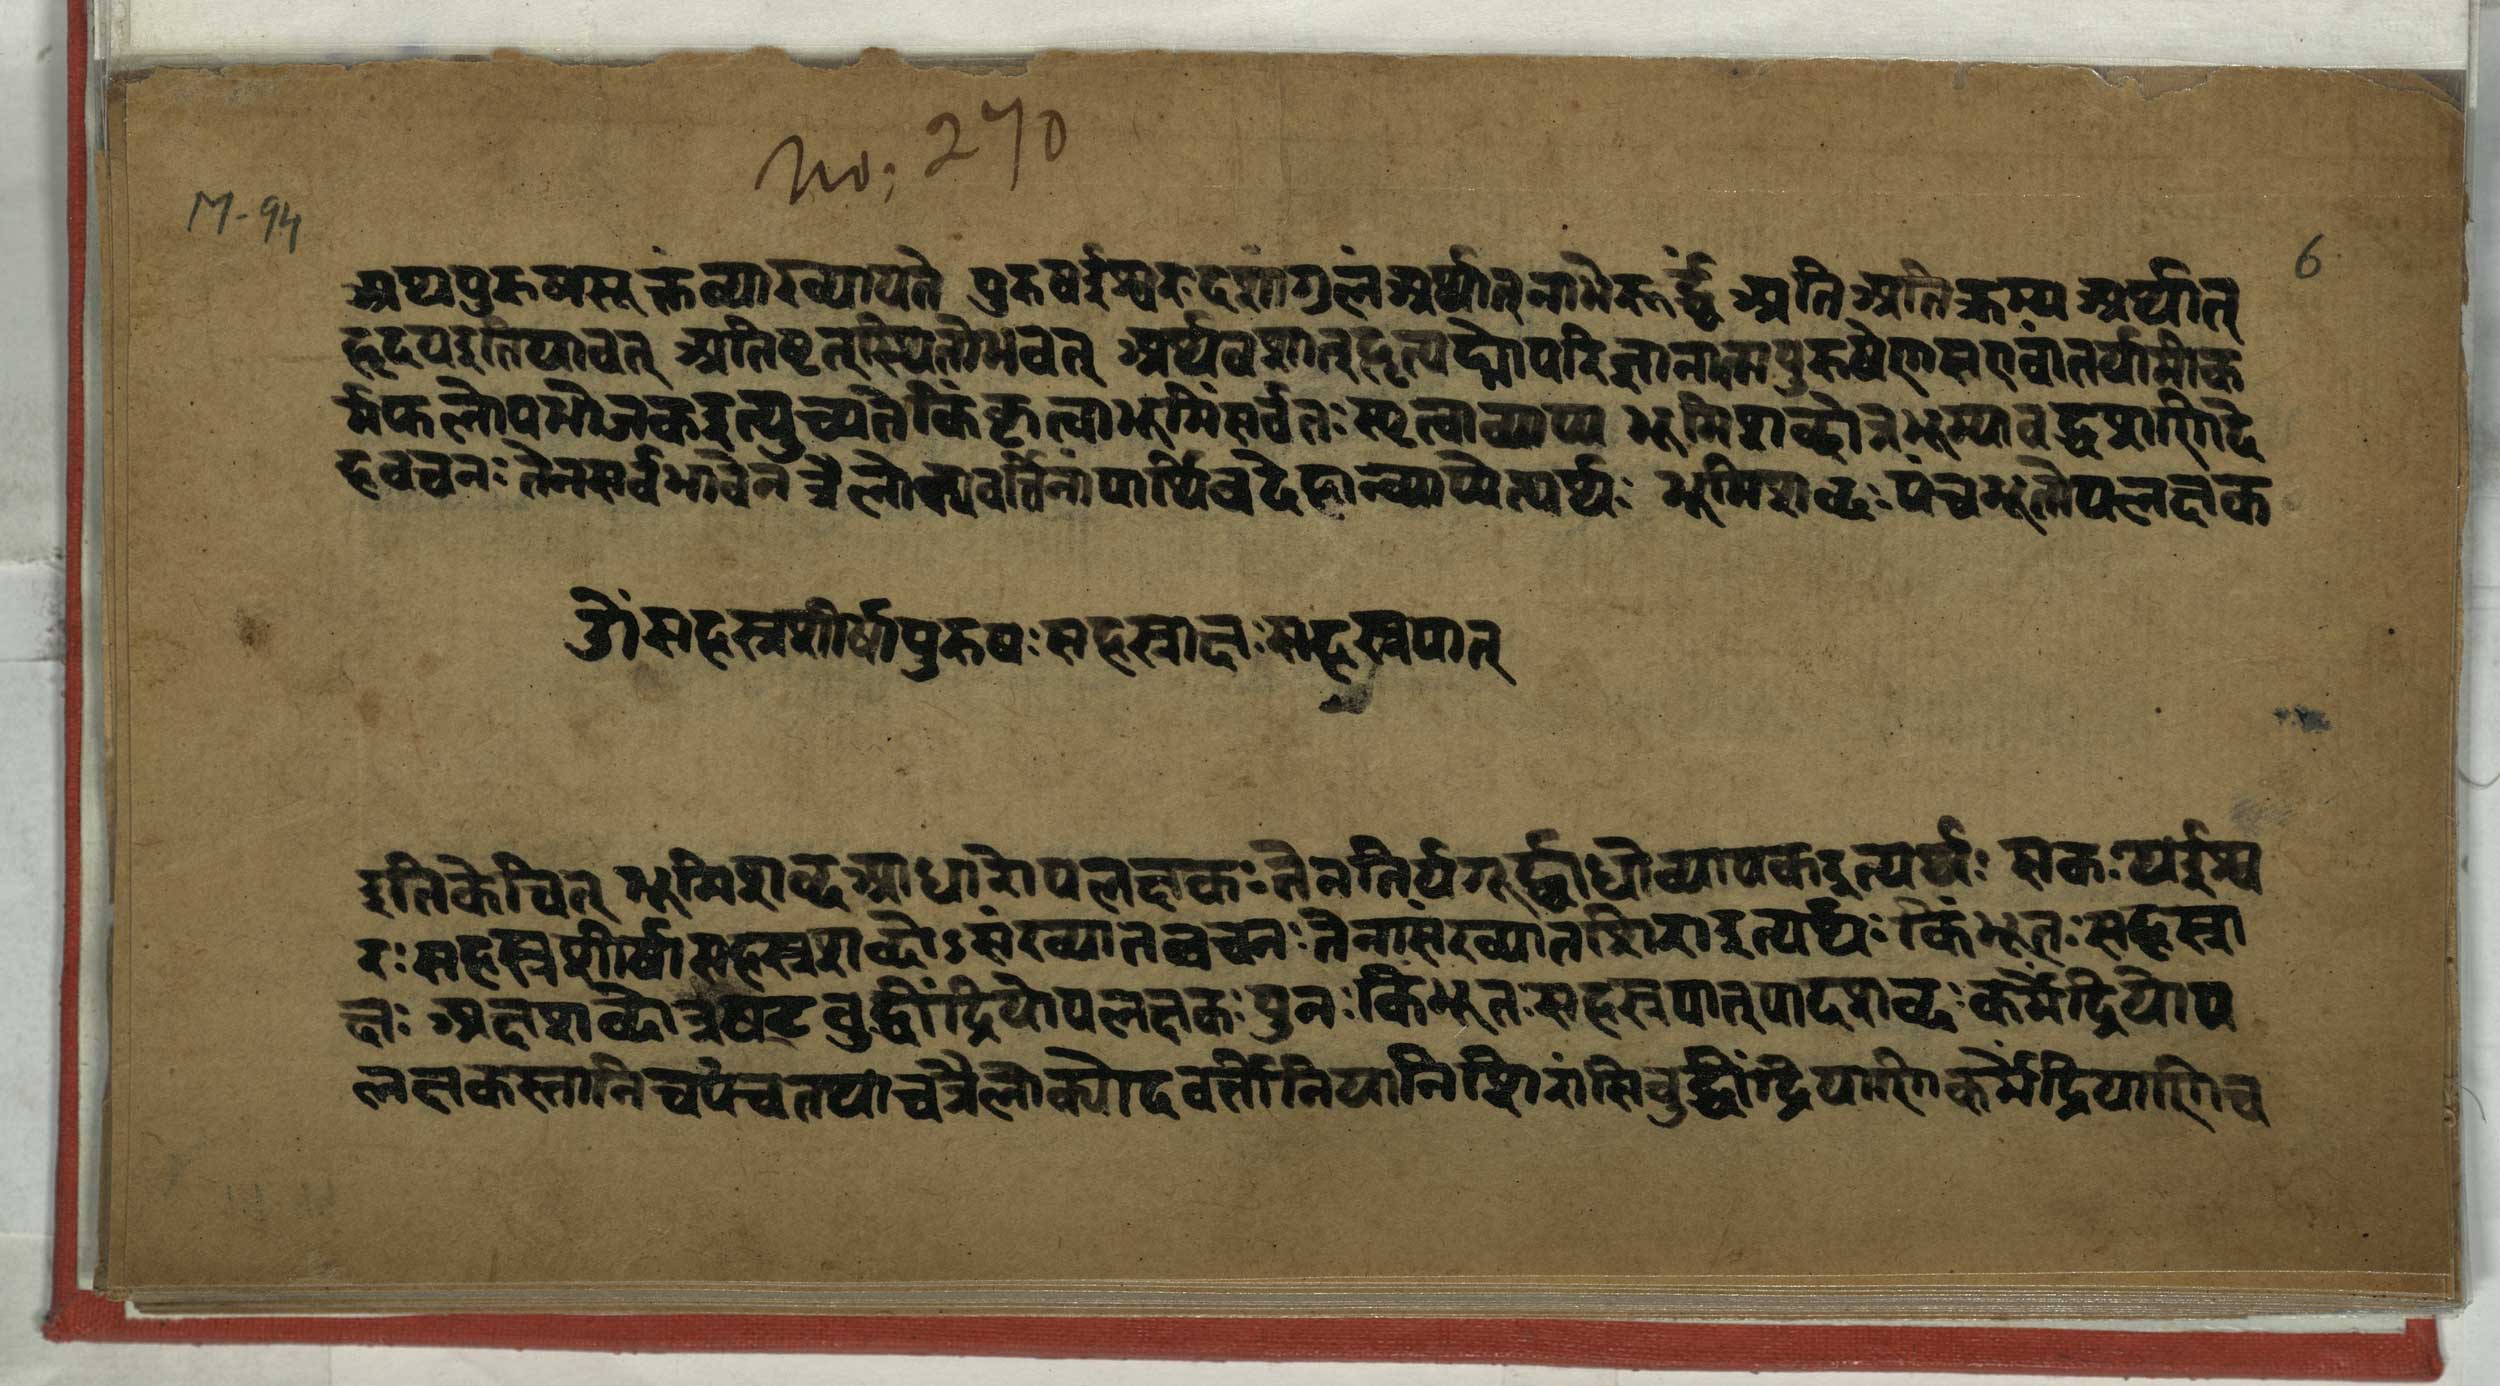 No: 270
M-94
6
अथ पुरुषसूक्तव्याख्यायते पुरुषईश्वरः दशांगुलं अर्थात् नाभेरूर्द्ध्वं अति अतिक्रम्य अर्थात्
हृदयइतियावत् अतिष्ठत् स्थितोभवत् अर्थवशात्हृत्पद्मोपरि
र्मफलोपभोजकइत्युच्यते किंकृत्वाभूमिंसर्वतः स्पृत्वाव्याप्य भूमिशब्दोत्रभूम्यावद्धप्राणिदे
हवचनः तेनसर्वभावेनत्रैलोक्यवर्तिनांपार्थिवदेहान्व्याप्येत्यर्थः भूमिशब्दः पंचभूतोपलक्षक
ॐसहस्रशीर्षापुरुषः सहस्राक्षः सहस्रपात्
इतिकेचित् भूमिशब्दआधारोपलक्षकः तेनतिर्यगूर्द्ध्वाधोव्यापकइत्यर्थः सकः यईश्व
रः सहस्रशीर्षासहस्रशब्दोऽसंख्यातवचनः तेनासंख्यातशिराइत्यर्थः किंभूतः सहस्रा
क्षः अक्षशब्दोत्रषट्बुद्धींद्रियोपलक्षकः पुनः किंभूतः सहस्रपात्पादशब्दः कर्मेंद्रियोप
लक्षकस्तानिचपंचतथाचत्रैलोक्योदवर्त्तीनियानिशिरांसिबुद्धींद्रियाणिकर्मेंद्रियाणिच